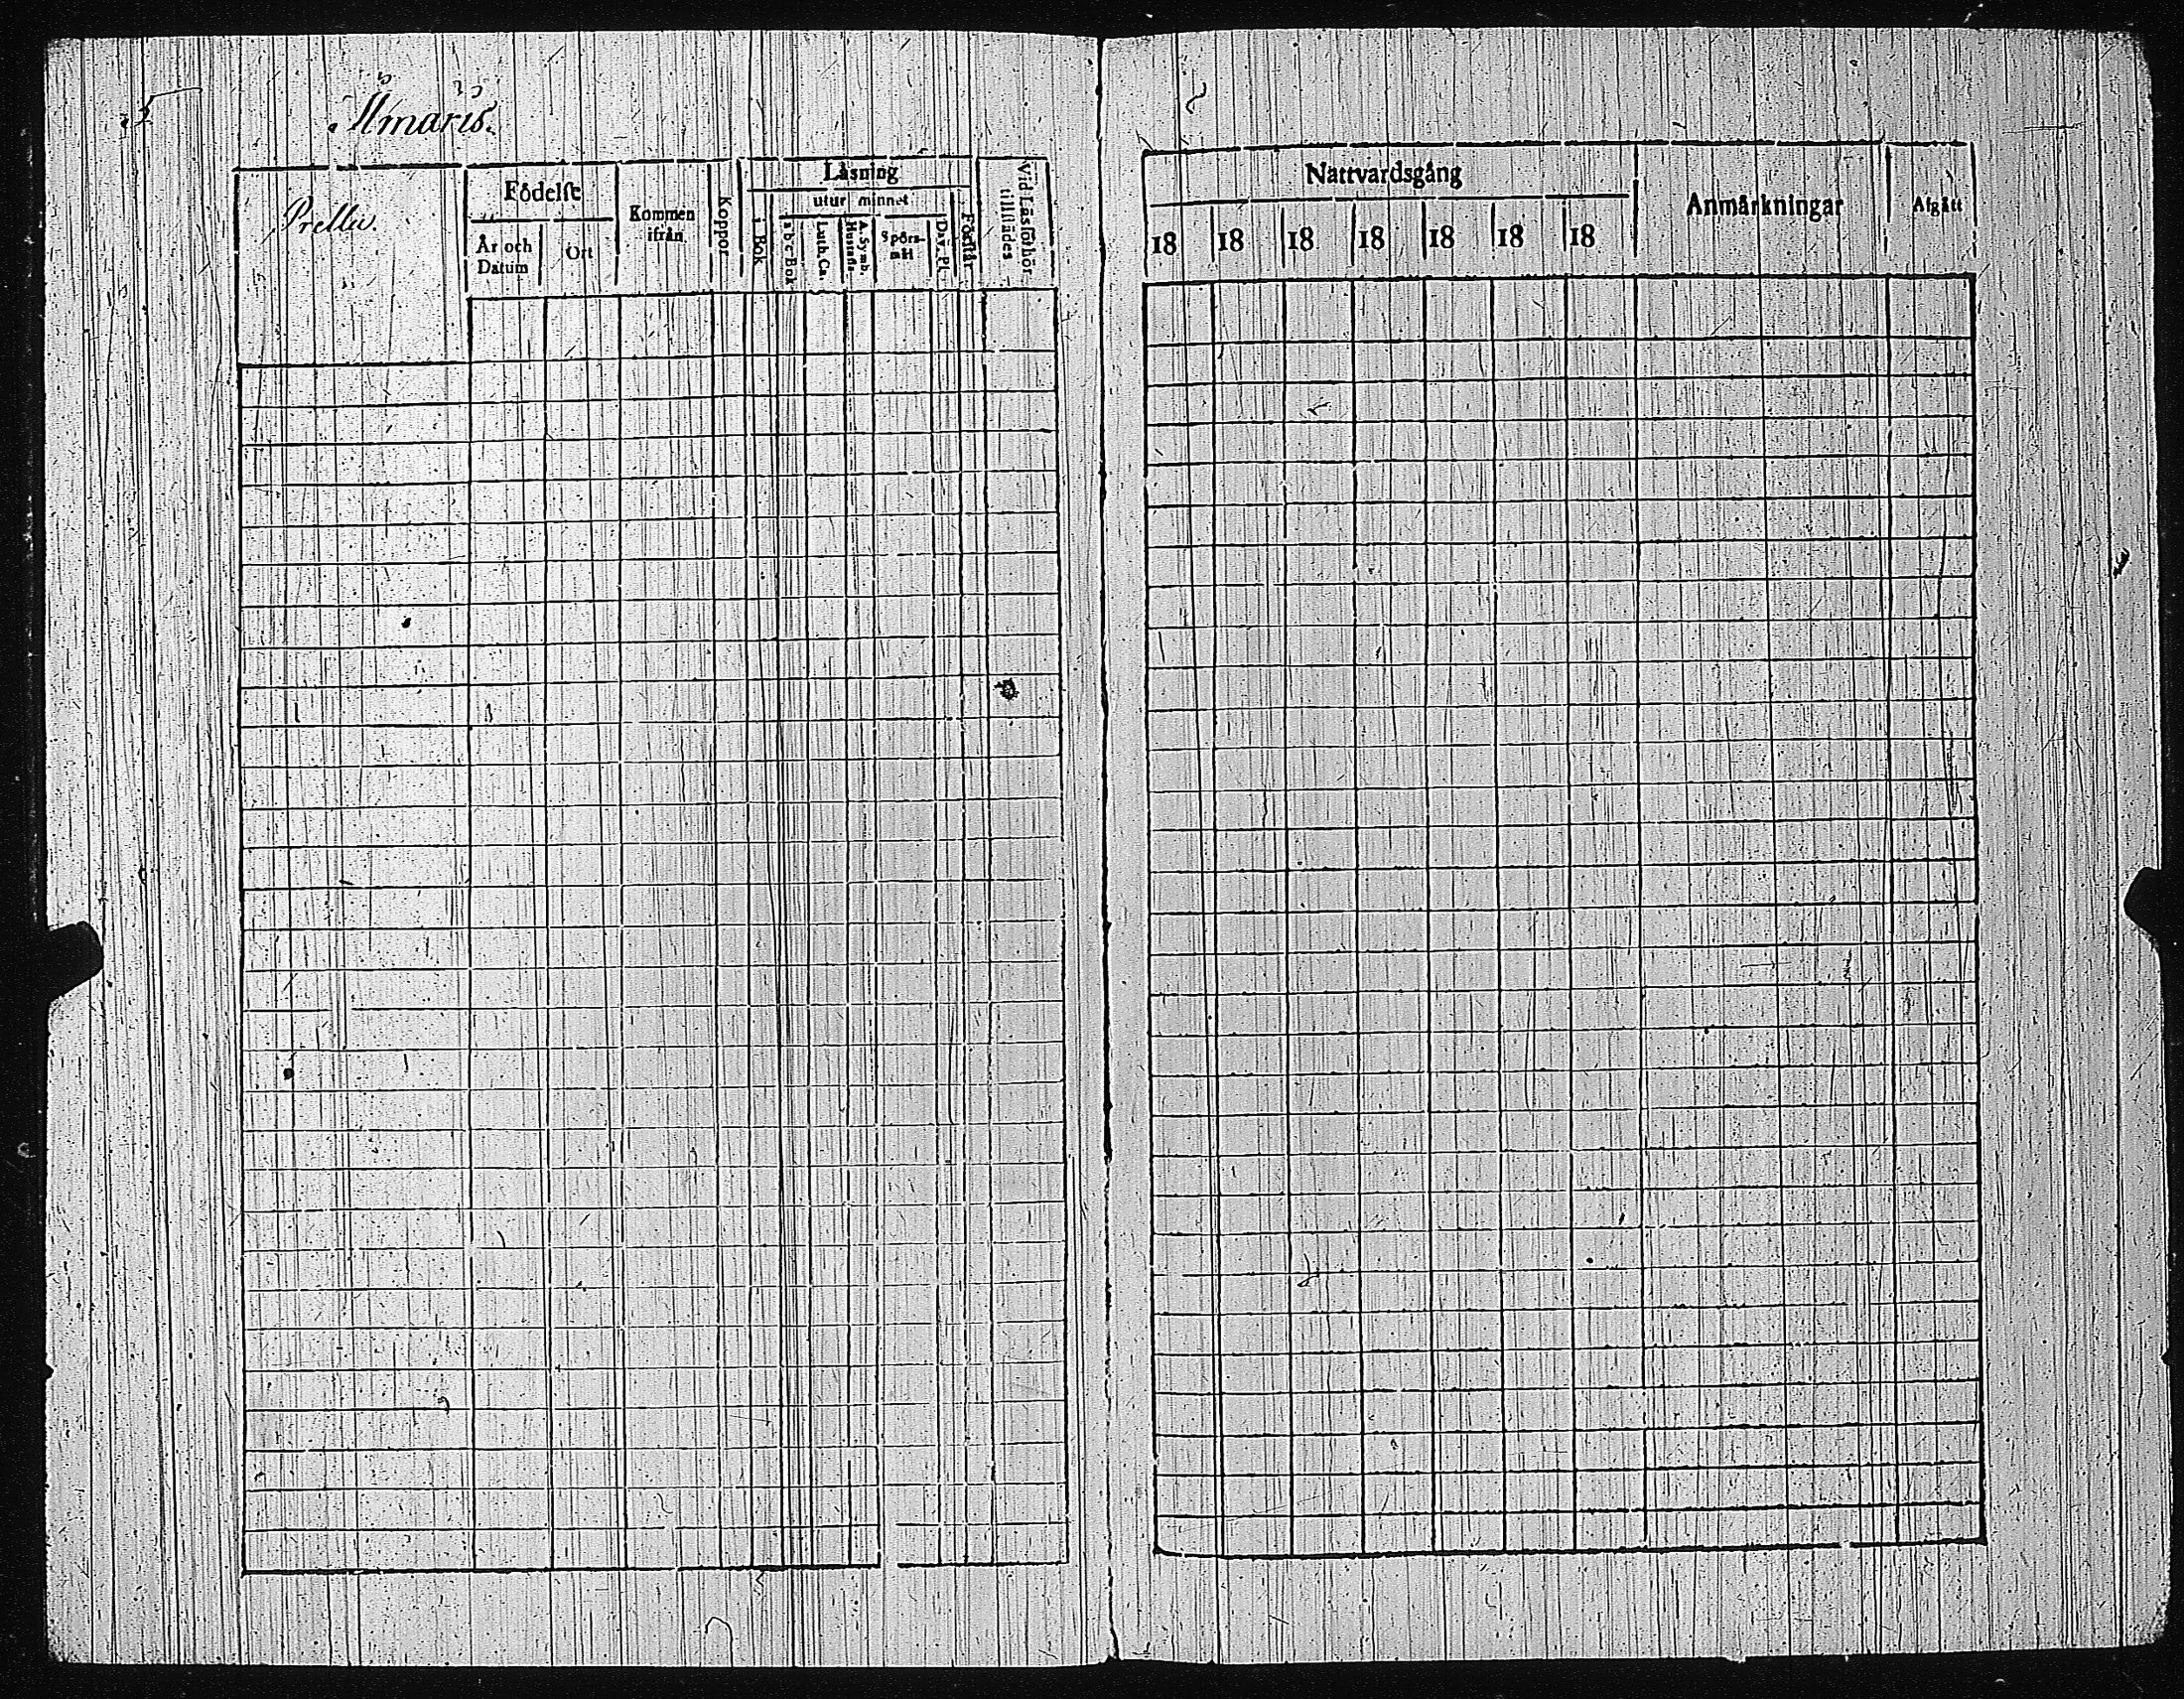 5
Ilmaris.
Prellu.
Födelse
År och Datum
Ort
Kommen ifrån
Koppor
Läsning
i Bok
utur minnet
a b c Bok
Luth. Ca.
A. Symb. Hustafla
Spörsmål
Dav. Ps.
Förstår
Vid Läsförhör tillstädes
Nattvardsgång
18 18 18 18 18 18 18
Anmärkningar
Afgått